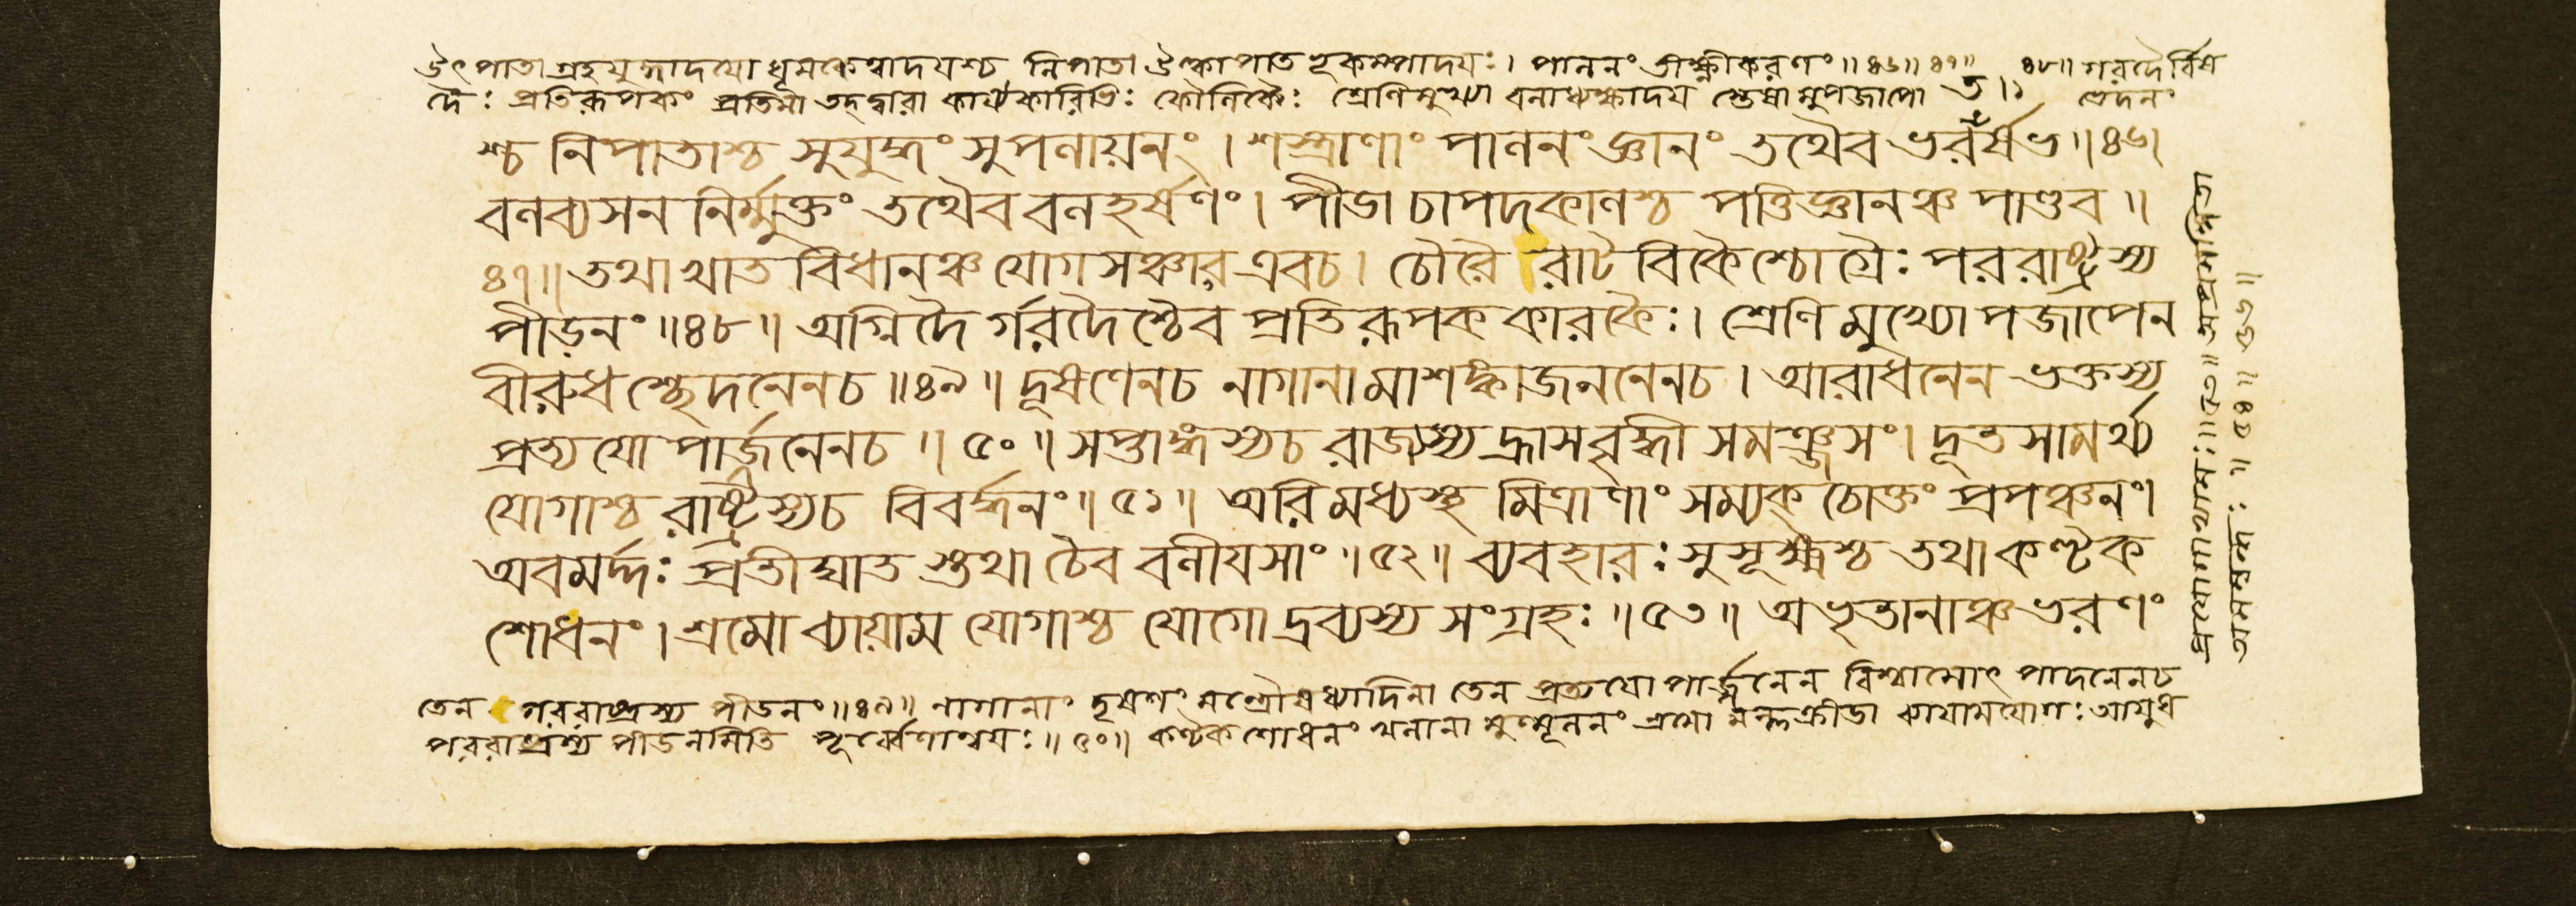 উৎপাতা গ্রহযুদ্ধাদয়ো ধূমকেত্বাদয়শ্চ নিপাতা উল্কাপাতভূকম্পাদয়ঃ। পাননং তীক্ষ্ণীকরণং॥৪৬॥৪৭॥ ৪৮॥ গরদৈর্বিষ
দৈঃ প্রতিরূপকং প্রতিমা তদ্দ্বারা কার্য্যকারিভিঃ কৌণিকৈঃ শ্রেণিমুখ্যা বনাধ্যক্ষাদয় স্তেষামুপজাপো ভেদনং
শ্চ নিপাতাশ্চ সুযুদ্ধং সুপনায়নং। শস্ত্রাণাং পাননং জ্ঞানং তথৈব ভরর্ষভ॥৪৬।
বনব্যসন নির্ম্মুক্তং তথৈব বনহর্ষণং। পীড়া চাপদকানশ্চ পত্তিজ্ঞানঞ্চ পাণ্ডব॥
৪৭॥ তথা খাত বিধানঞ্চ যোগসঞ্চার এবচ। চৌরৈ রাটবিকৈশ্চোগ্রৈঃ পররাষ্ট্রস্য
পীড়নং॥৪৮॥ অগ্নিদৈ র্গরদৈশ্চৈব প্রতিরূপক কারকৈঃ। শ্রেণি মুখ্যোপজাপেন
বীরুধ শ্ছেদনেনচ॥৪৯॥ দূষণেনচ নাগানামাশঙ্কাজননেনচ। আরাধনেন ভক্তস্য
প্রত্যয়ো পার্জনেনচ॥৫০॥ সপ্তাঙ্গস্যচ রাজ্যস্য হ্রাসবৃদ্ধী সমঞ্জসং। দূতসামর্থ্য
যোগাশ্চ রাষ্ট্রস্যচ বিবর্দ্ধনং॥৫১॥ অরি মধ্যস্থ মিত্রাণাং সম্যক্ চোক্তং প্রপঞ্চনং।
অবমর্দ্দঃ প্রতীঘাত স্তথা চৈব বনীয়সাং॥৫২॥ ব্যবহারঃ সুসূক্ষ্মশ্চ তথা কণ্টক
শোধনং। শ্রমো ব্যায়াম যোগাশ্চ যোগো দ্রব্যস্য সংগ্রহঃ॥৫৩॥ অভৃতানাঞ্চ ভরণং
তেন পররাষ্ট্রস্য পীড়নং॥৪৯॥ নাগানাং দূষণং মন্ত্রৌষধ্যাদিনা তেন প্রত্যয়োপার্জ্জনেন বিশ্বাসোৎপাদনেনচ
পররাষ্ট্রস্য পীড়নমিতি পূর্ব্বেণান্বয়ঃ॥৫০॥ কণ্টকশোধনং খনানা মুন্মূননং শ্রমো মল্লক্রীড়া ব্যায়ামযোগঃ আয়ুধ